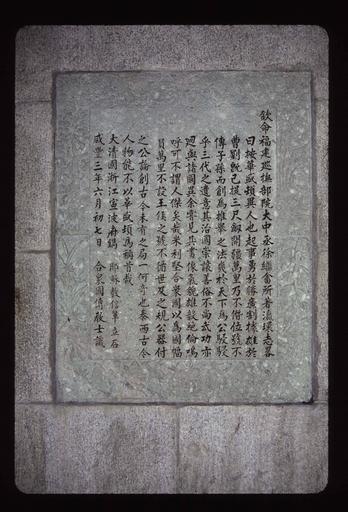 欽命福建巡撫部院大中丞徐繼畬所著瀛環志畧
曰按華盛頓異人也起事勇於勝廣割據雄於
曹劉既已提三尺劍開疆萬里乃不僭位號不
傳子孫而創為推舉之法幾於天下為公駸駸
乎三代之遺意其治國崇讓善俗不尚武功亦
迥與諸國異余嘗見其畫像氣貌雄毅絕倫嗚
呼可不謂人傑矣哉米利堅合眾國以為國幅
員萬里不設王侯之號不循世及之規公器付
之公論創古今未有之局一何奇也泰西古今
人物能不以華盛頓為稱首哉
大清國浙江寧波府鐫 耶穌教信輩立石
咸豐三年六月初七日 合眾國傳教士識